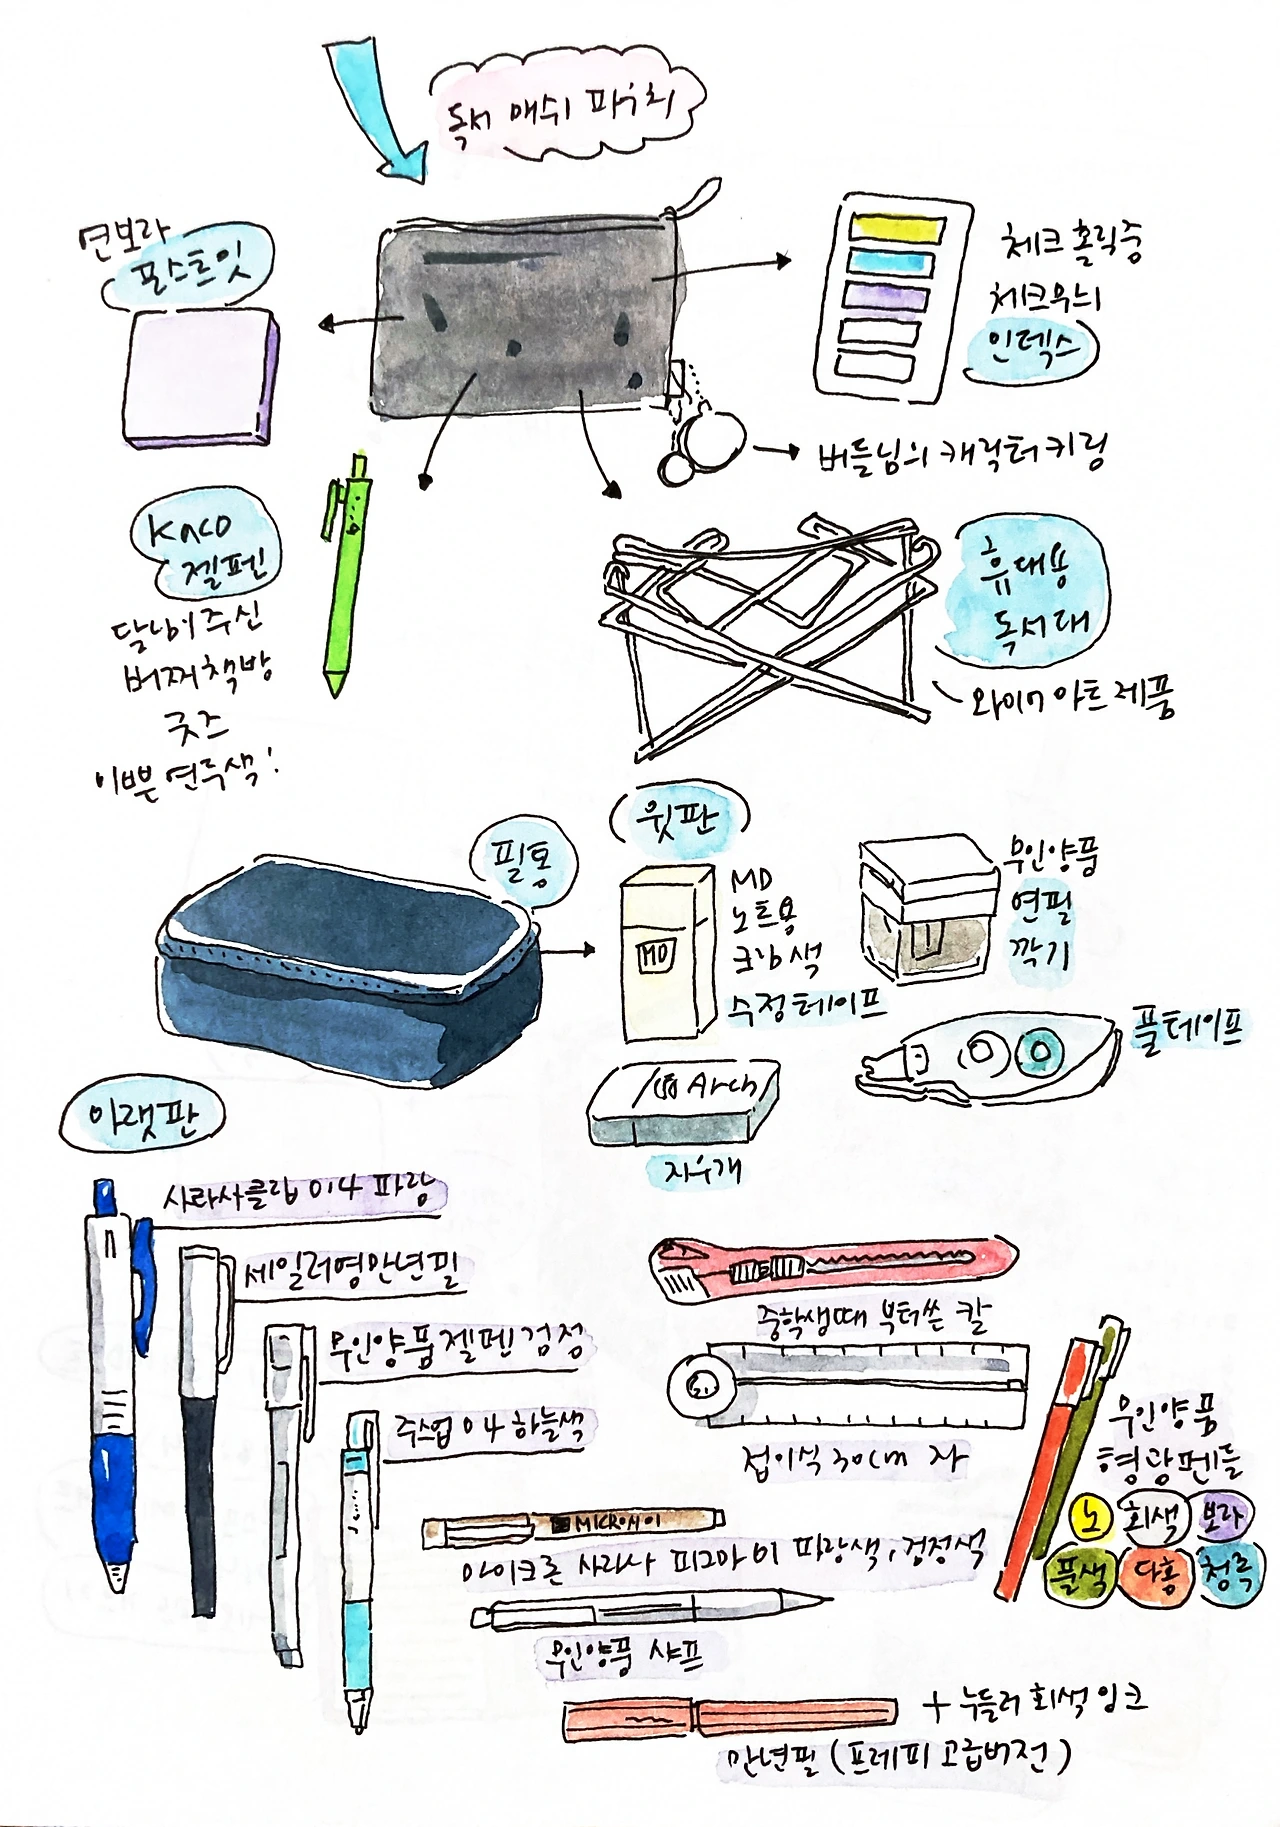 독서 매쉬 파우치
연보라
포스트잇
체크홀릭중
체크무늬
인덱스
버들님의 캐릭터 키링
Kaco
젤펜
달님이 주신
버찌책방
굿즈
이쁜 연두색!
휴대용
독서대
와이어 아트 제품
필통
윗판
MD
노트용
크림색
수정테이프
MD
무인양품
연필
깍기
풀테이프
Arch
지우개
아랫판
사라사클립 04 파랑
세일러영만년필
무인양품젤펜검정
주스업 04 하늘색
중학생때 부터쓴 칼
접이식 30cm 자
무인양품
형광펜들
노 회색 보라
풀색 다홍 청록
마이크론 사라사 피그마 01 파랑색, 검정색
무인양품 샤프
+ 누들러 회색잉크
만년필 (프레피 고급버전)